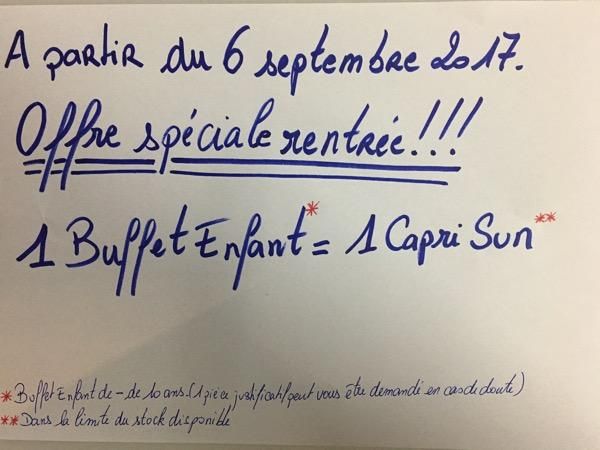 A partir du 6 septembre 2017.
Offre spéciale rentrée!!!
1 Buffet Enfant* = 1 Capri Sun**
* Buffet Enfant de - de 10 ans. (1 pièce justificatif peut vous être demandé en cas de doute)
** Dans la limite du stock disponible